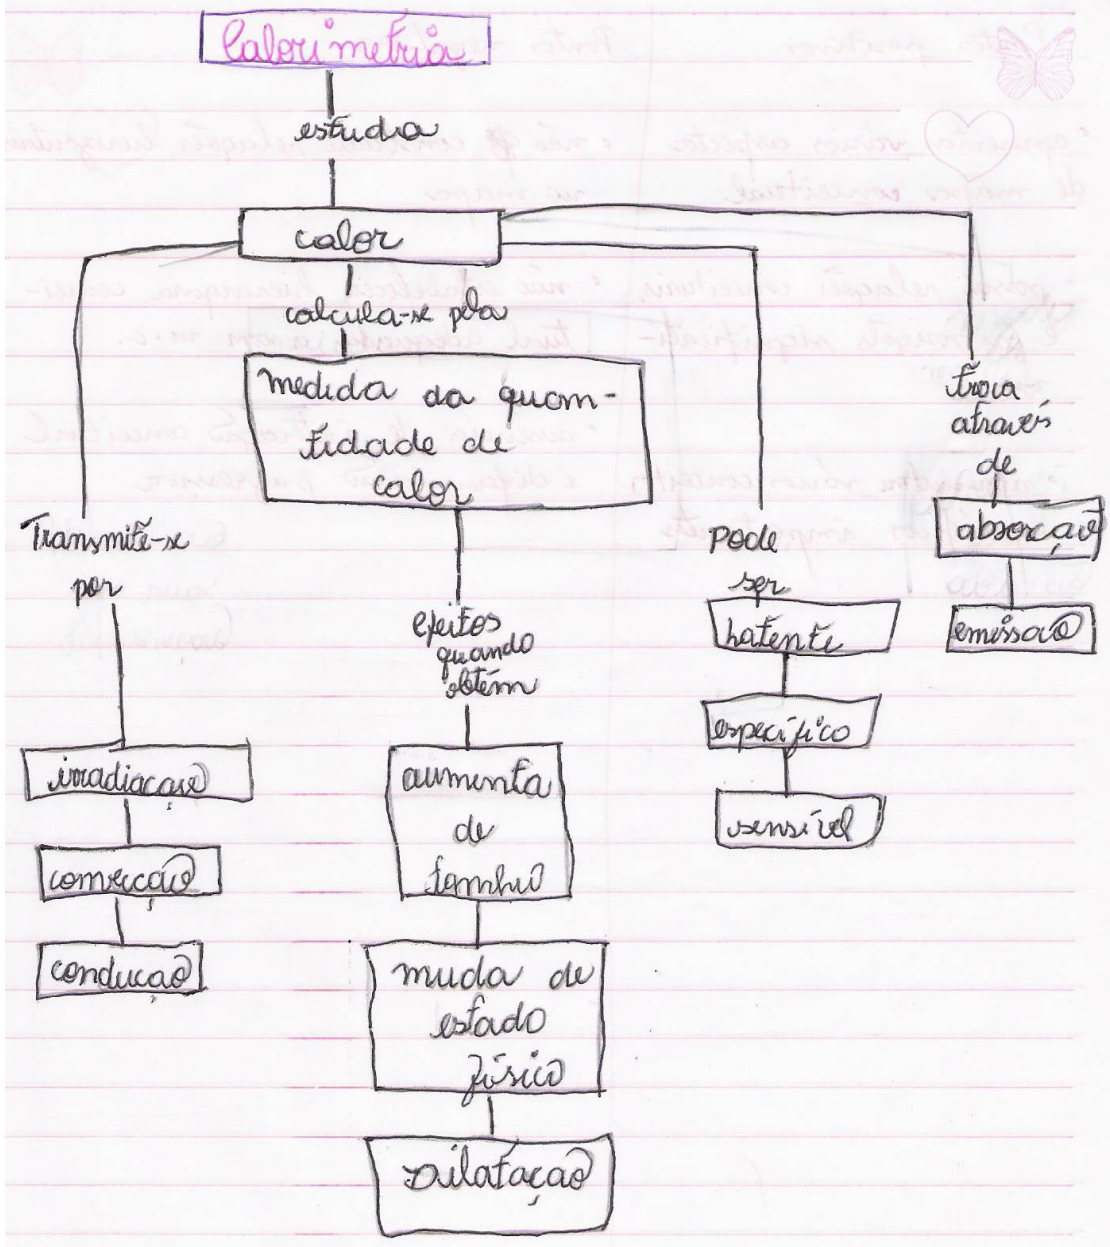 Calorimetria
estuda
calor
calcula-se pela
medida da quan-
tidade de
calor
Transmite-se
por
irradiação
convecção
condução
efeitos
quando
obtém
aumenta
de
tamnho
muda de
estado
físico
Dilatação
pode
ser
latente
específico
sensível
troca
através
de
absorção
emissão